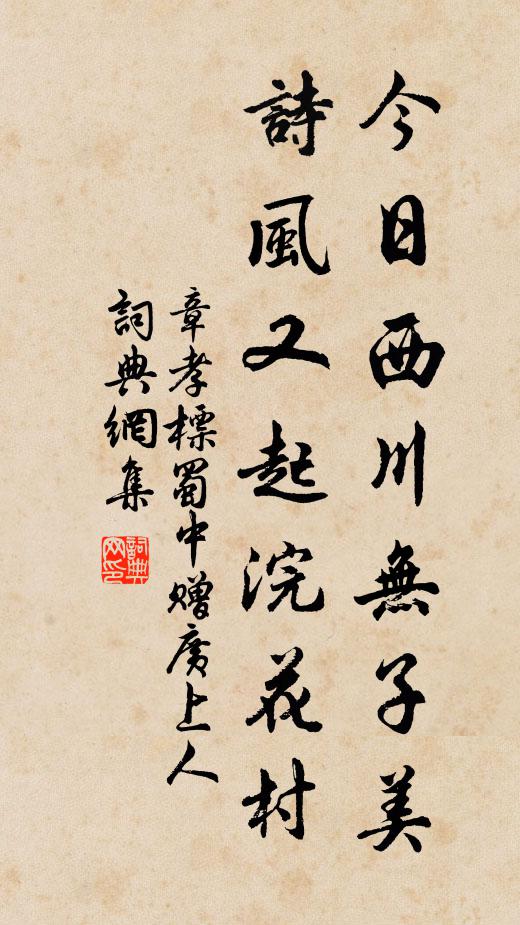 今日西川無子美
詩風又起浣花村
章孝標蜀中贈廣上人
詞典網集
詞典網印